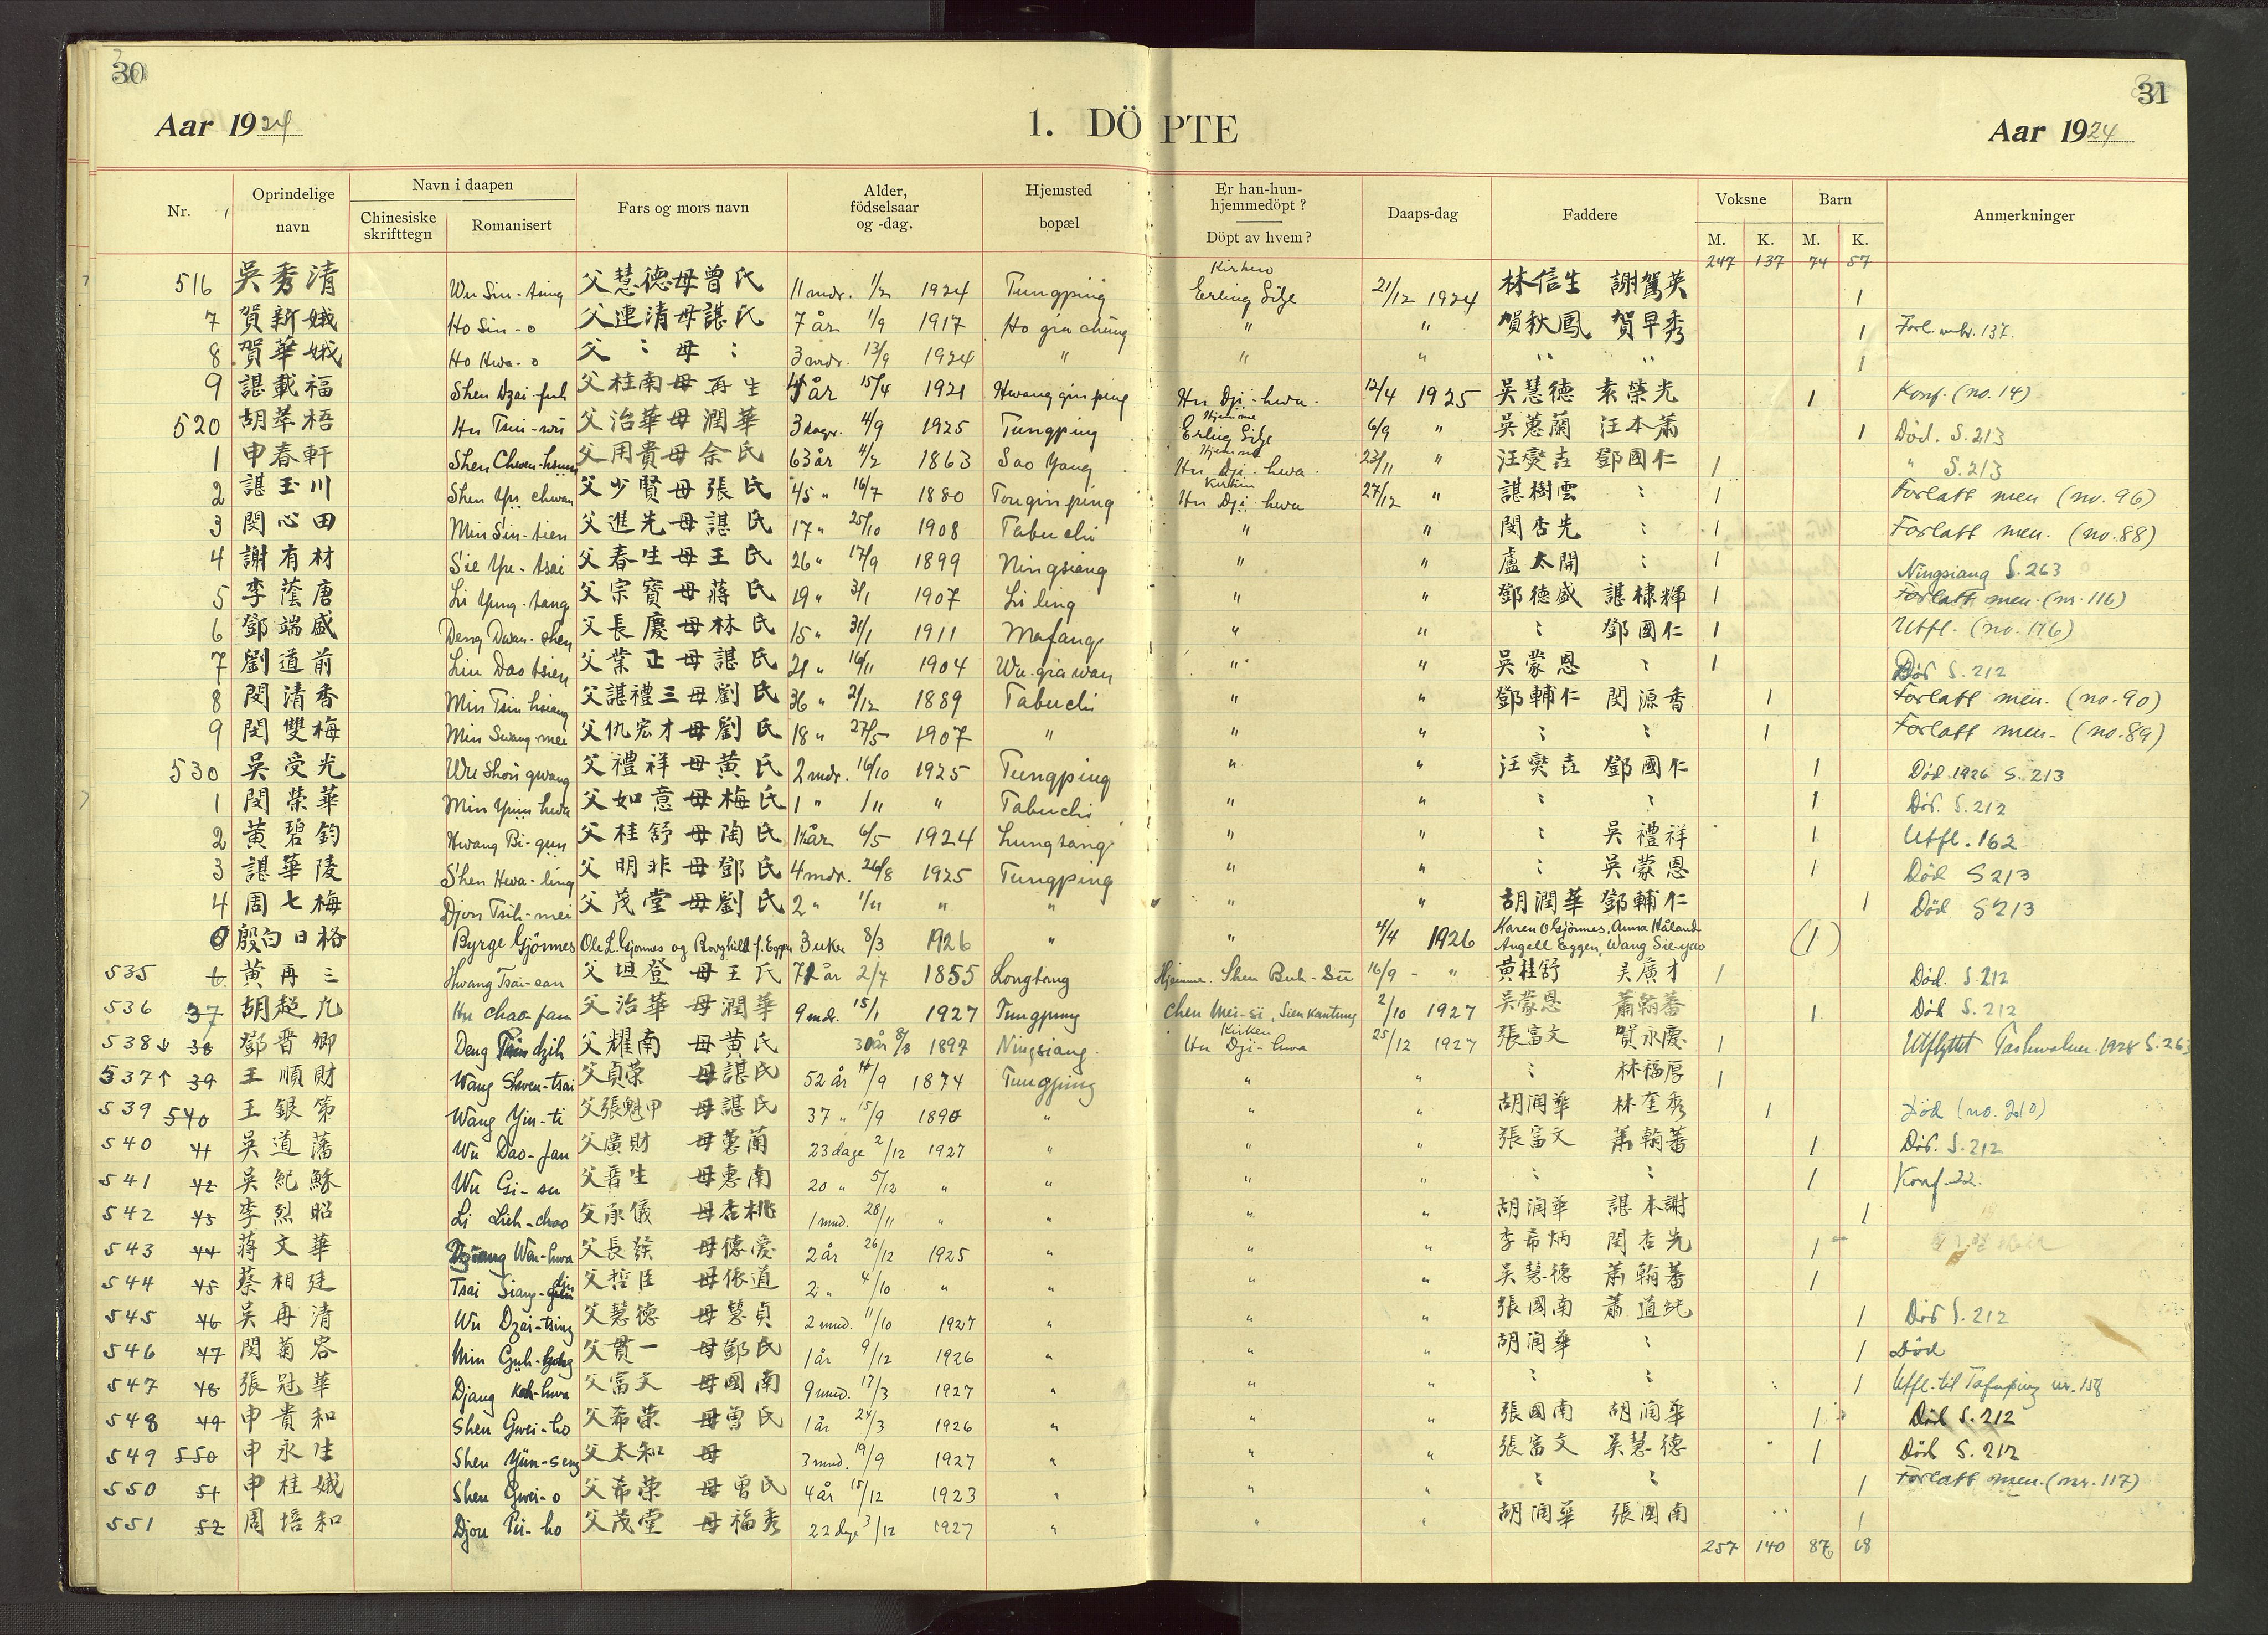 30
31
Aar 1924
1. DÖPTE
Aar 1924
Nr. Oprindelige navn Navn i daapen Chinesiske skrifttegn Romanisert Fars og mors navn Alder, födselsaar og -dag. Hjemsted bopæl Er han-hun-hjemmedöpt? Döpt av hvem? Daaps-dag Faddere Voksne M. K. Barn M. K. Anmerkninger
247 137 74 57
516 吳秀清 Wu Siu-tsing 父慧德母曾氏 11 mdr. 1/2 1924 Tungping Kirken Erling Gilje 21/12 1924 林信生 謝駕英 1
7 賀新娥 Ho Sin-o 父連清母諶氏 7 år 1/9 1917 Ho gia chung " " 賀秋鳳 賀早秀 1 Forl. 137.
8 賀華娥 Ho Hwa-o 父 : 母 : 3 mdr. 13/9 1924 " " " " " 1
9 諶載福 Shen Dzai-fuh 父柱南母再生 4 år 15/4 1921 Hwang gin ping Hu Dji-hwa. 12/4 1925 吳慧德 袁榮光 1 Konf. (no. 14)
520 胡萃梧 Hu Tsui-wu 父治華母潤華 3 dager. 4/9 1925 Tungping Hjemme Erling Gilje 6/9 " 吳蕙蘭 汪本蕭 1 Död. S. 213
1 申春軒 Shen Chwen-hsuen 父用貴母余氏 63 år 4/2 1863 Sao Yang Hjemme Hu Dji-hwa. 23/11 " 汪爕垚 鄧國仁 1 " S. 213
2 諶玉川 Shen Yü chwan 父少賢母張氏 45 " 16/7 1880 Tougin ping Kirken Hu Dji-hwa 27/12 " 諶樹雲 : 1 Forlatt men (no. 96)
3 閔心田 Min Sin-tien 父進先母諶氏 17 " 25/10 1908 Tabuchi " " 閔杏先 : 1 Forlatt men. (no. 88)
4 謝有材 Sie Yu-tsai 父春生母王氏 26 " 17/9 1899 Ningsiang " " 盧太開 : 1 Ningsiang S. 263
5 李蔭唐 Li Yung-tang 父宗寶母蔣氏 19 " 3/1 1907 Li ling " " 鄧德盛 諶棣輝 1 Forlatt men. (nr. 116)
6 鄧端盛 Deng Dwan-shen 父長慶母林氏 15 " 31/1 1911 Mafang " " : 鄧國仁 1 Utfl. (no. 176)
7 劉道前 Liu Dao tsien 父業正母諶氏 21 " 16/11 1904 Wu gia wan " " 吳蒙恩 : 1 Död S. 212
8 閔清香 Min Tsin hsiang 父諶禮三母劉氏 36 " 2/12 1889 Tabuchi " " 鄧輔仁 閔源香 1 Forlatt men. (no. 90)
9 閔雙梅 Min Swang-mei 父仇宏才母劉氏 18 " 27/5 1907 " " " : : 1 Forlatt men. (no. 89)
530 吳受光 Wu Shou gwang 父禮祥母黃氏 2 mdr. 16/10 1925 Tungping " " 汪爕垚 鄧國仁 1 Död 1926 S. 213
1 閔榮華 Min Yuin hwa 父如意母梅氏 1 " 1/11 " Tabuchi " " : : 1 Död. S. 212
2 黃碧鈞 Hwang Bi-gun 父桂舒母陶氏 1½ år 6/5 1924 Lungtang " " : 吳禮祥 1 Utfl. 162
3 諶華陵 Shen Hwa-ling 父明非母鄧氏 4 mdr. 26/8 1925 Tungping " " : 吳蒙恩 1 Död S 213
4 周七梅 Djou Tsih-mei 父茂堂母劉氏 2 " 1/11 " " " " 胡潤華 鄧輔仁 1 Död S 213
0 殷向日格 Byrge Gjönnes Ole L Gjönnes og Borghild f. Eggen 3 uker 8/3 1926 " " 4/4 1926 Karen O Gjönnes, Anna Håland Angell Eggen, Wang Sie-yao (1)
535 6 黃再三 Hwang Tsai-san 父坦登 母王氏 71 år 2/7 1855 Longtang Hjemme. Shen Buh-sü 16/9 - " 黃桂舒 吴廣才 1 Död. S. 212
536 37 胡超凡 Hu Chao-fan 父治華 母潤華 9 mdr. 15/1 1927 Tungping Chen Mei-si, Sienkantung 2/10 1927 吴蒙恩 蕭翰蕃 1 Död S. 212
538↓ 38 鄧晋卿 Deng Tsin dzih 父耀南 母黄氏 30 år 8/8 1897 Ningsiang. Kirken Hu Dji-hwa 25/12 1927 張富文 賀永慶 1 Utflyttet Taohwalun. 1928 S. 263
537↑ 39 王順財 Wang Shwen-tsai 父貞荣 母諶氏 52 år 14/9 1874 Tungping " " : 林福厚 1
539 540 王銀第 Wang Yin-ti 父張魁甲 母諶氏 37 " 15/9 1890 " " " 胡润華 林奎秀 1 Död (no. 210)
540 41 吴道藩 Wu Dao-fan 父廣財 母蕙蘭 23 dage 2/12 1927 " " " 張富文 蕭翰蕃 1 Död. S. 212
541 42 吴紀穌 Wu Gi-su 父善生 母惠南 20 " 5/12 " " " " : : 1 Konf. 22.
542 43 李烈昭 Li Lieh-chao 父承儀 母杏桃 1 mnd. 28/11 " " " " 胡润華 諶本謝 1
543 44 蒋文華 Dziang Wen-hwa 父長發 母德愛 2 år 26/12 1925 " " " 李希炳 閔杏先 1
544 45 蔡相廷 Tsai Siang- 父哲臣 母依道 2 " 4/10 " " " " 吴慧德 蕭翰蕃 1
545 46 吴再清 Wu Dzai-tsing 父慧德 母慧貞 2 mnd. 11/10 1927 " " " 張國南 蕭道純 1 Död S. 212
546 47 閔菊容 Min Güh- 父贯一 母鄧氏 1 år 9/12 1926 " " " 胡润華 : 1 Död
547 48 張冠華 Djang hwa 父富文 母國南 9 mnd. 17/3 1927 " " " : : 1 Utfl. til Tafuping nr. 158
548 49 申貴和 Shen Gwei-ho 父希荣 母曾氏 1 år 24/3 1926 " " " 張國南 胡润華 1 Död S. 212
549 550 申永生 Shen Yün-seng 父太和 母 3 mnd. 19/9 1927 " " " 張富文 吴慧德 1 Död S. 212
550 51 申桂娥 Shen Gwei-o 父希荣 母曾氏 4 år 15/12 1923 " " " : : 1 Forlatt men. (nr. 117)
551 52 周培和 Djou Pei-ho 父茂堂 母福秀 22 dage 3/12 1927 " " " 胡润華 張國南 1
257 140 87 68